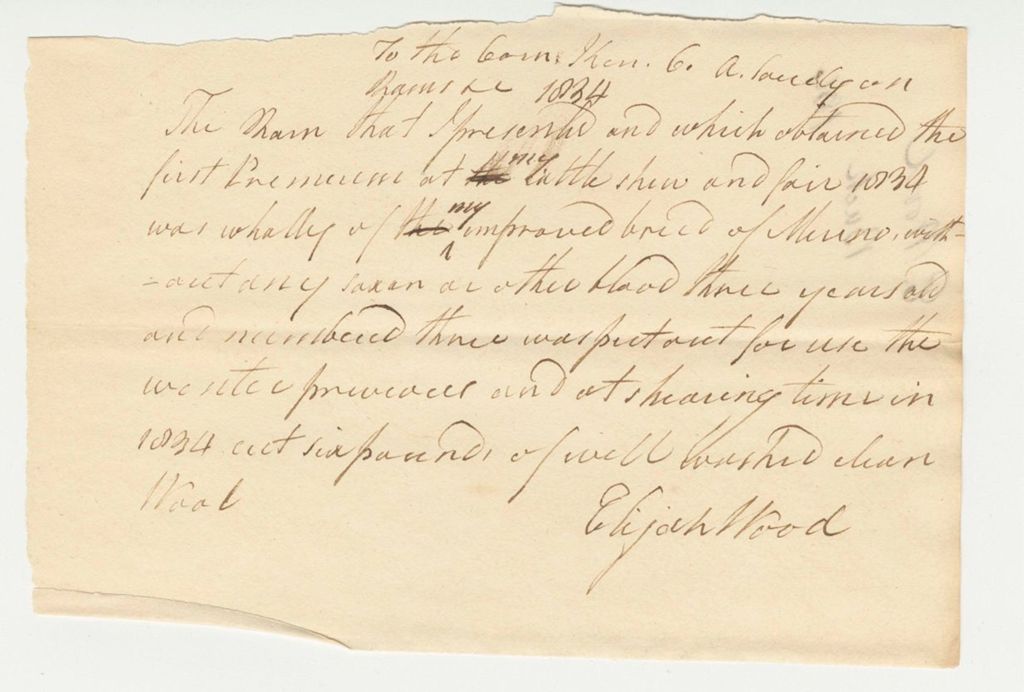 To the Com. Ken. C. A. Socity on
Rams &c 1834
The Ram that I presented and which obtained the
first Premeum at the my Cattle shew and fair 1834
was wholly of the my improved breed of Merino, with-
=out any saxon or other blood three years old
and numbered three was put out for use the
winter previous and at shearing time in
1834 cut six pounds of well washed clean
Wool
Elijah Wood